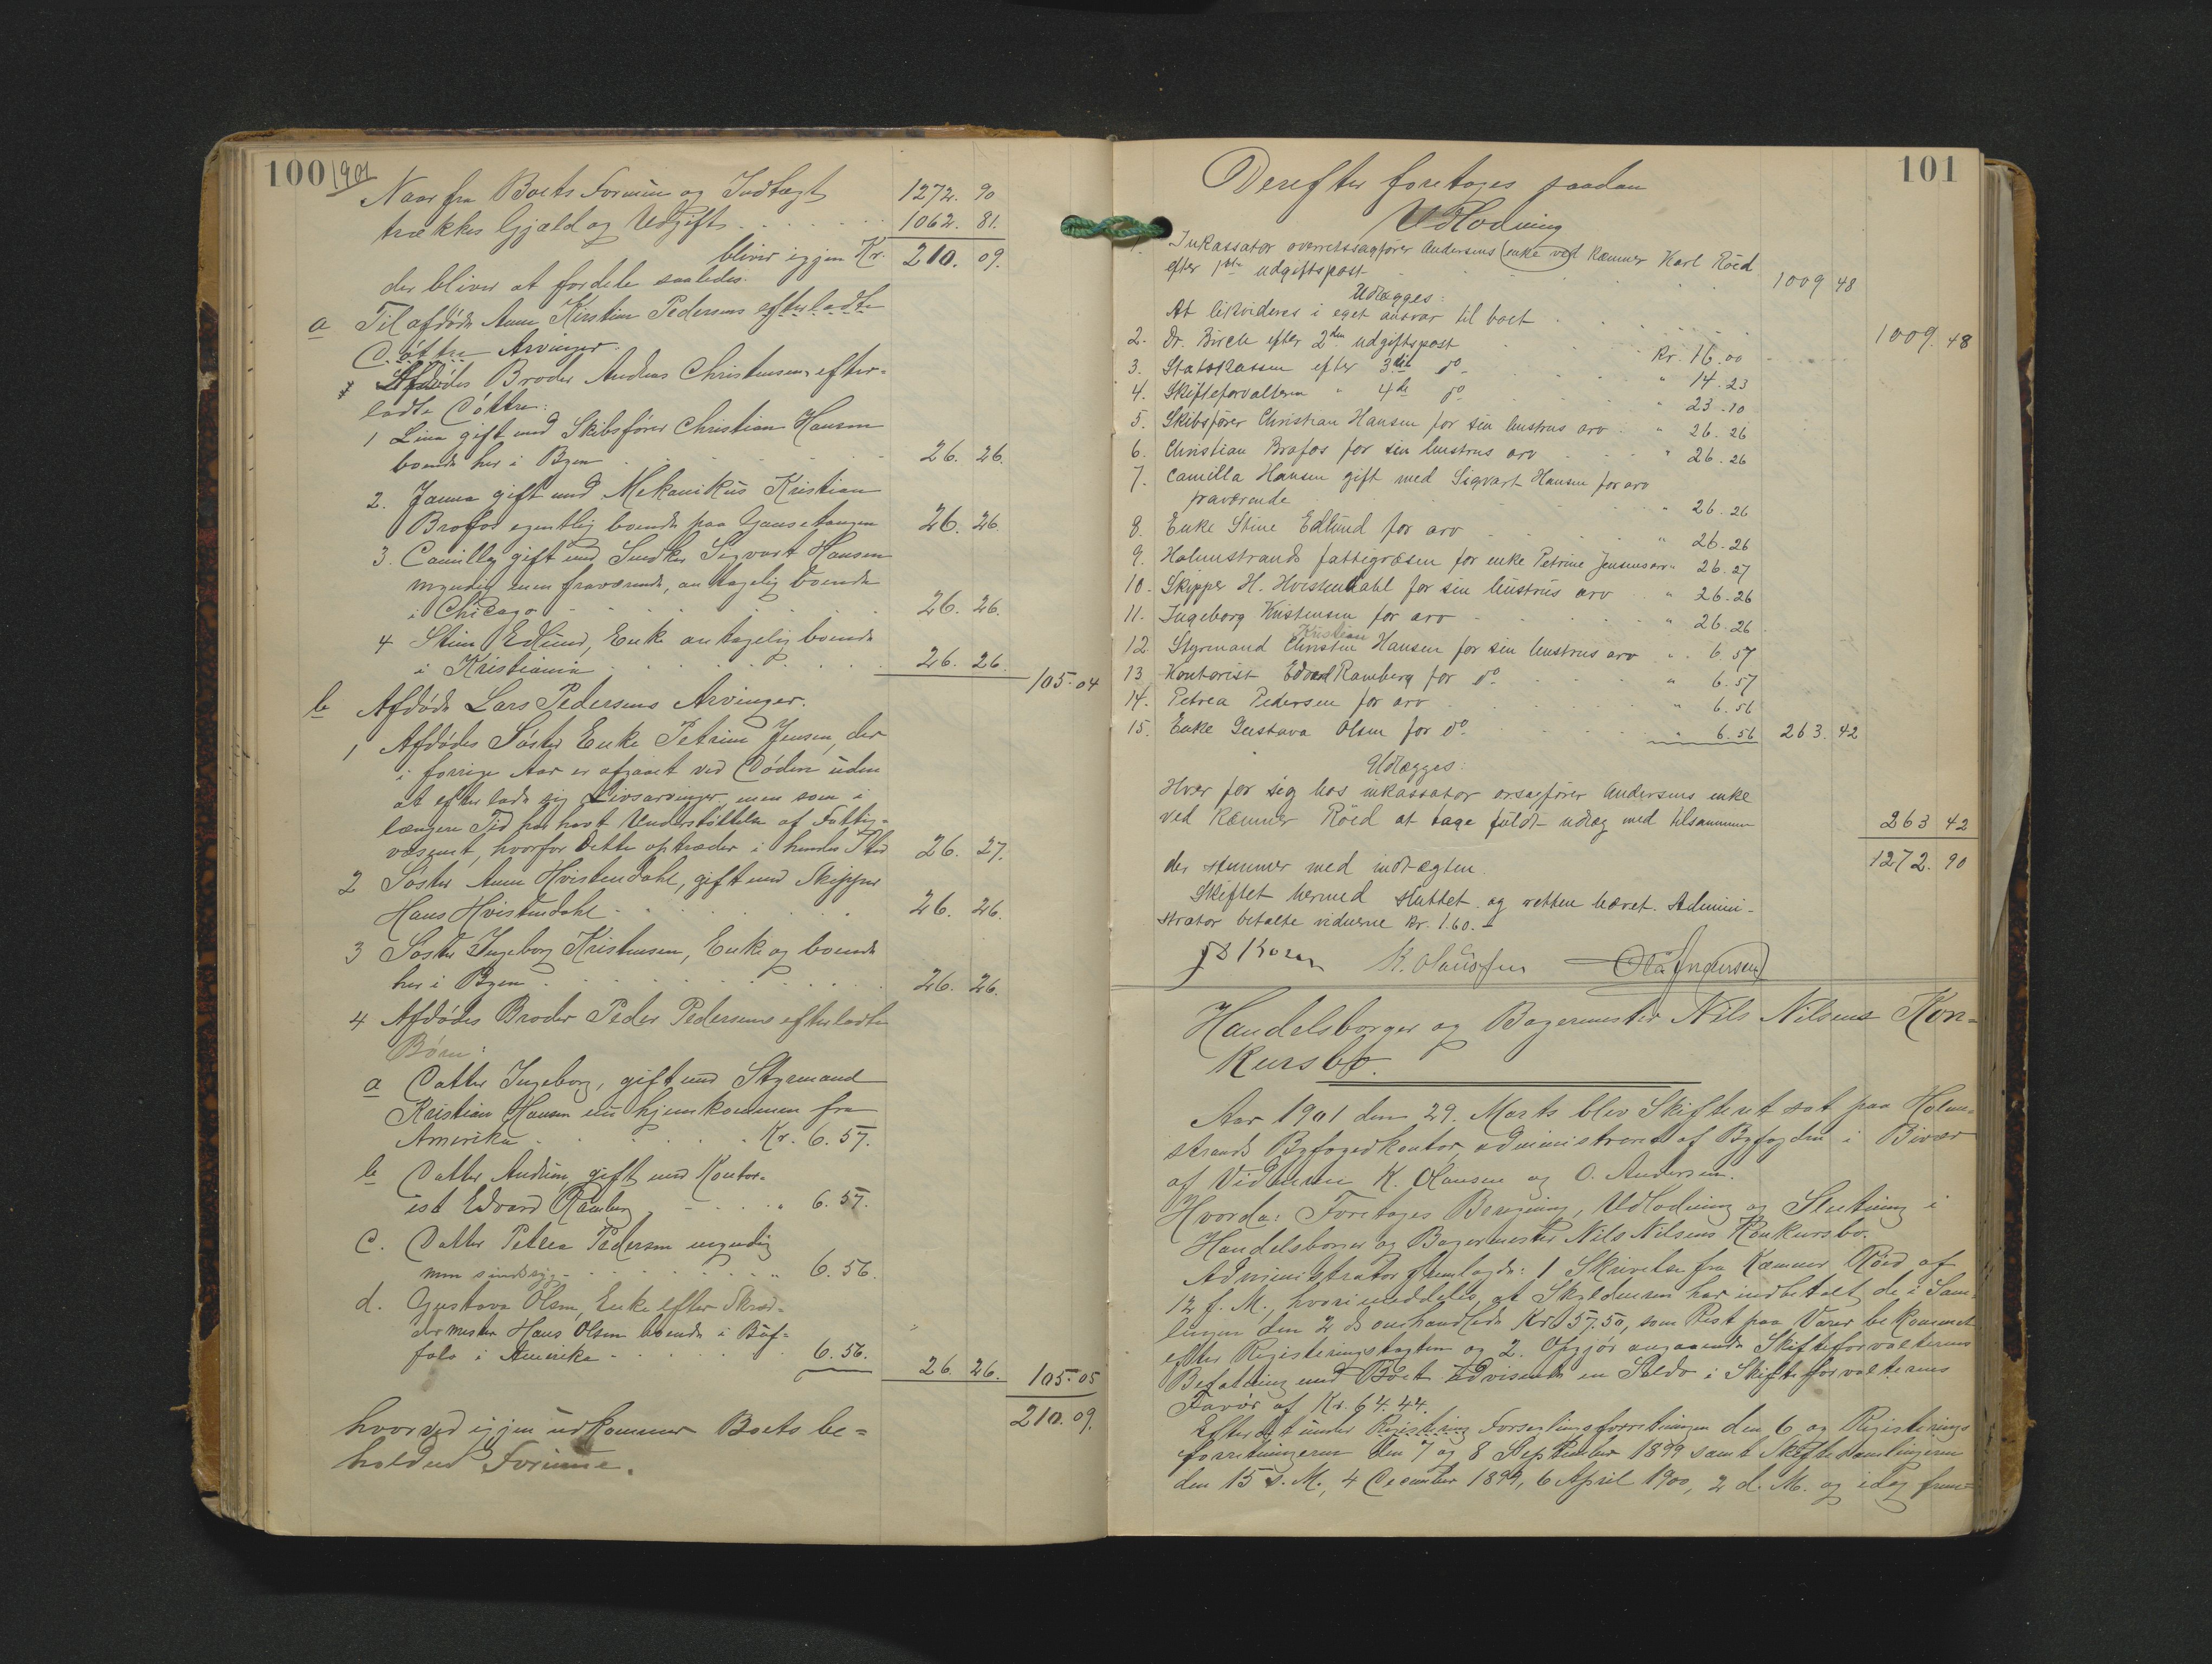 100
1901
Naar fra Boets Formue og Indtægt 1272. 90
trækkes Gjæld og Udgift 1062. 81.
bliver igjen Kr. 210. 09.
der bliver at fordele saaledes.
a Til afdøde Anne Kirstine Pedersens efterladte
Døttre Arvinger.
Afdødes Broder Andreas Christensens efter-
ladte Døttre:
1 Lina gift med Skibsfører Christian Hansen
boende her i Byen 26. 26.
2. Janna gift med Mekanikus Kristian
Brofos egentlig boende paa Gausetangen 26. 26
3. Camilla gift med Snedker Sigvart Hansen
myndig men fraværende, antagelig boende
i Chicago 26. 26.
4 Stine Edlund, Enke antagelig boende
i Kristiania 26. 26. 105.04
b Afdøde Lars Pedersens Arvinger.
1 Afdødes Søster Enke Petrine Jensen, der
i forrige Aar er afgaaet ved Døden uden
at efterlade sig Livsarvinger, men som i
længere Tid har havt Understøttelse af Fattig-
væsenet, hvorfor dette optræder i hendes Sted 26. 27.
2 Søster Anne Hvistendahl, gift med Skipper
Hans Hvistendahl 26. 26.
3 Søster Ingeborg Kristensen, Enke og boende
her i Byen 26. 26.
4 Afdødes Broder Peder Pedersens efterladte
Børn:
a Datter Ingeborg, gift med Styrmand
Kristian Hansen nu hjemkommen fra
Amerika Kr. 6. 57.
b Datter Andrine, gift med Kontor-
ist Edvard Ramberg " 6. 57.
c. Datter Petrea Pedersen myndig
men sindssyg " 6. 56.
d. Gustava Olsen, Enke efter Skræd-
dermester Hans Olsen boende i Buf-
falo i Amerika 6. 56. 26. 26. 105.05
210. 09.
hvorved igjen udkommer Boets be-
holdne Formue.
101
Derefter foretoges saadan
Udlodning
1. Inkassator overretssagfører Andersens (enke ved Kæmner Karl Röed
efter 1ste udgiftspost 1009 48
Udlægges:
At likvideres i eget ansvar til boet 1009. 48
2. Dr. Birch efter 2den udgiftspost Kr. 16.00
3. Statskassen efter 3die do. " 14.23
4. Skifteforvalteren " 4de do " 23.10
5. Skibsfører Christian Hansen for sin hustrus arv " 26.26
6. Christian Brofos for sin hustrus arv " 26.26
7. Camilla Hansen gift med Sigvart Hansen for arv
fraværende " 26.26
8. Enke Stine Edlund for arv " 26.26
9. Holmestrands fattigvæsen for enke Petrine Jensens arv " 26.27
10. Skipper H. Hvistendahl for sin hustrus arv " 26.26
11. Ingeborg Kristensen for arv " 26.26
Kristian
12 Styrmand Christen Hansen for sin hustrus arv " 6.57
13 Kontorist Edvard Ramberg for do " 6.57
14. Petrea Pedersen for arv " 6.56
15. Enke Gustava Olsen for do " 6.56 263. 42
Udlægges:
Hver for sig hos inkassator orsagfører Andersens enke
ved Kæmner Röed at tage fuldt udlæg med tilsammen 263 42
1272. 90
der stemmer med indtægten.
Skiftet hermed sluttet og retten hævet. Admini-
strator betalte vidnerne Kr. 1.60.
K. Olaussen Ole Andersen
Handelsborger og Bagermester Nils Nilsens Kon-
kursbo.
Aar 1901 den 29. Marts blev Skifteret sat paa Holme-
strands Byfogedkontor, administreret af Byfogden i Bivær
af Vidnerne K. Olausen og O. Andersen.
Hvorda: Foretoges Beregning, Udlodning og Slutning i
Handelsborger og Bagermester Nils Nilsens Konkursbo.
Administrator fremlagde: 1 Skrivelse fra Kæmner Röed af
12 f. M., hvori meddeles at Skyldneren har indbetalt de i Sam-
lingen den 2 ds omhandlede Kr. 57.50, som Rest paa Varer bekommet
efter Registreringstagten og 2. Opgjør angaaende Skifteforvalterens
Befatning med Boet udvisende en Saldo i Skifteforvalterens
Favør af Kr. 64.44.
Efter det under Registering Forseglingsforretningen den 6 og Registerings
forretningerne den 7 og 8 September 1899 samt Skiftesamlingerne
den 15 s. M., 4 December 1899, 6 April 1900, 2 d. M. og idag frem-